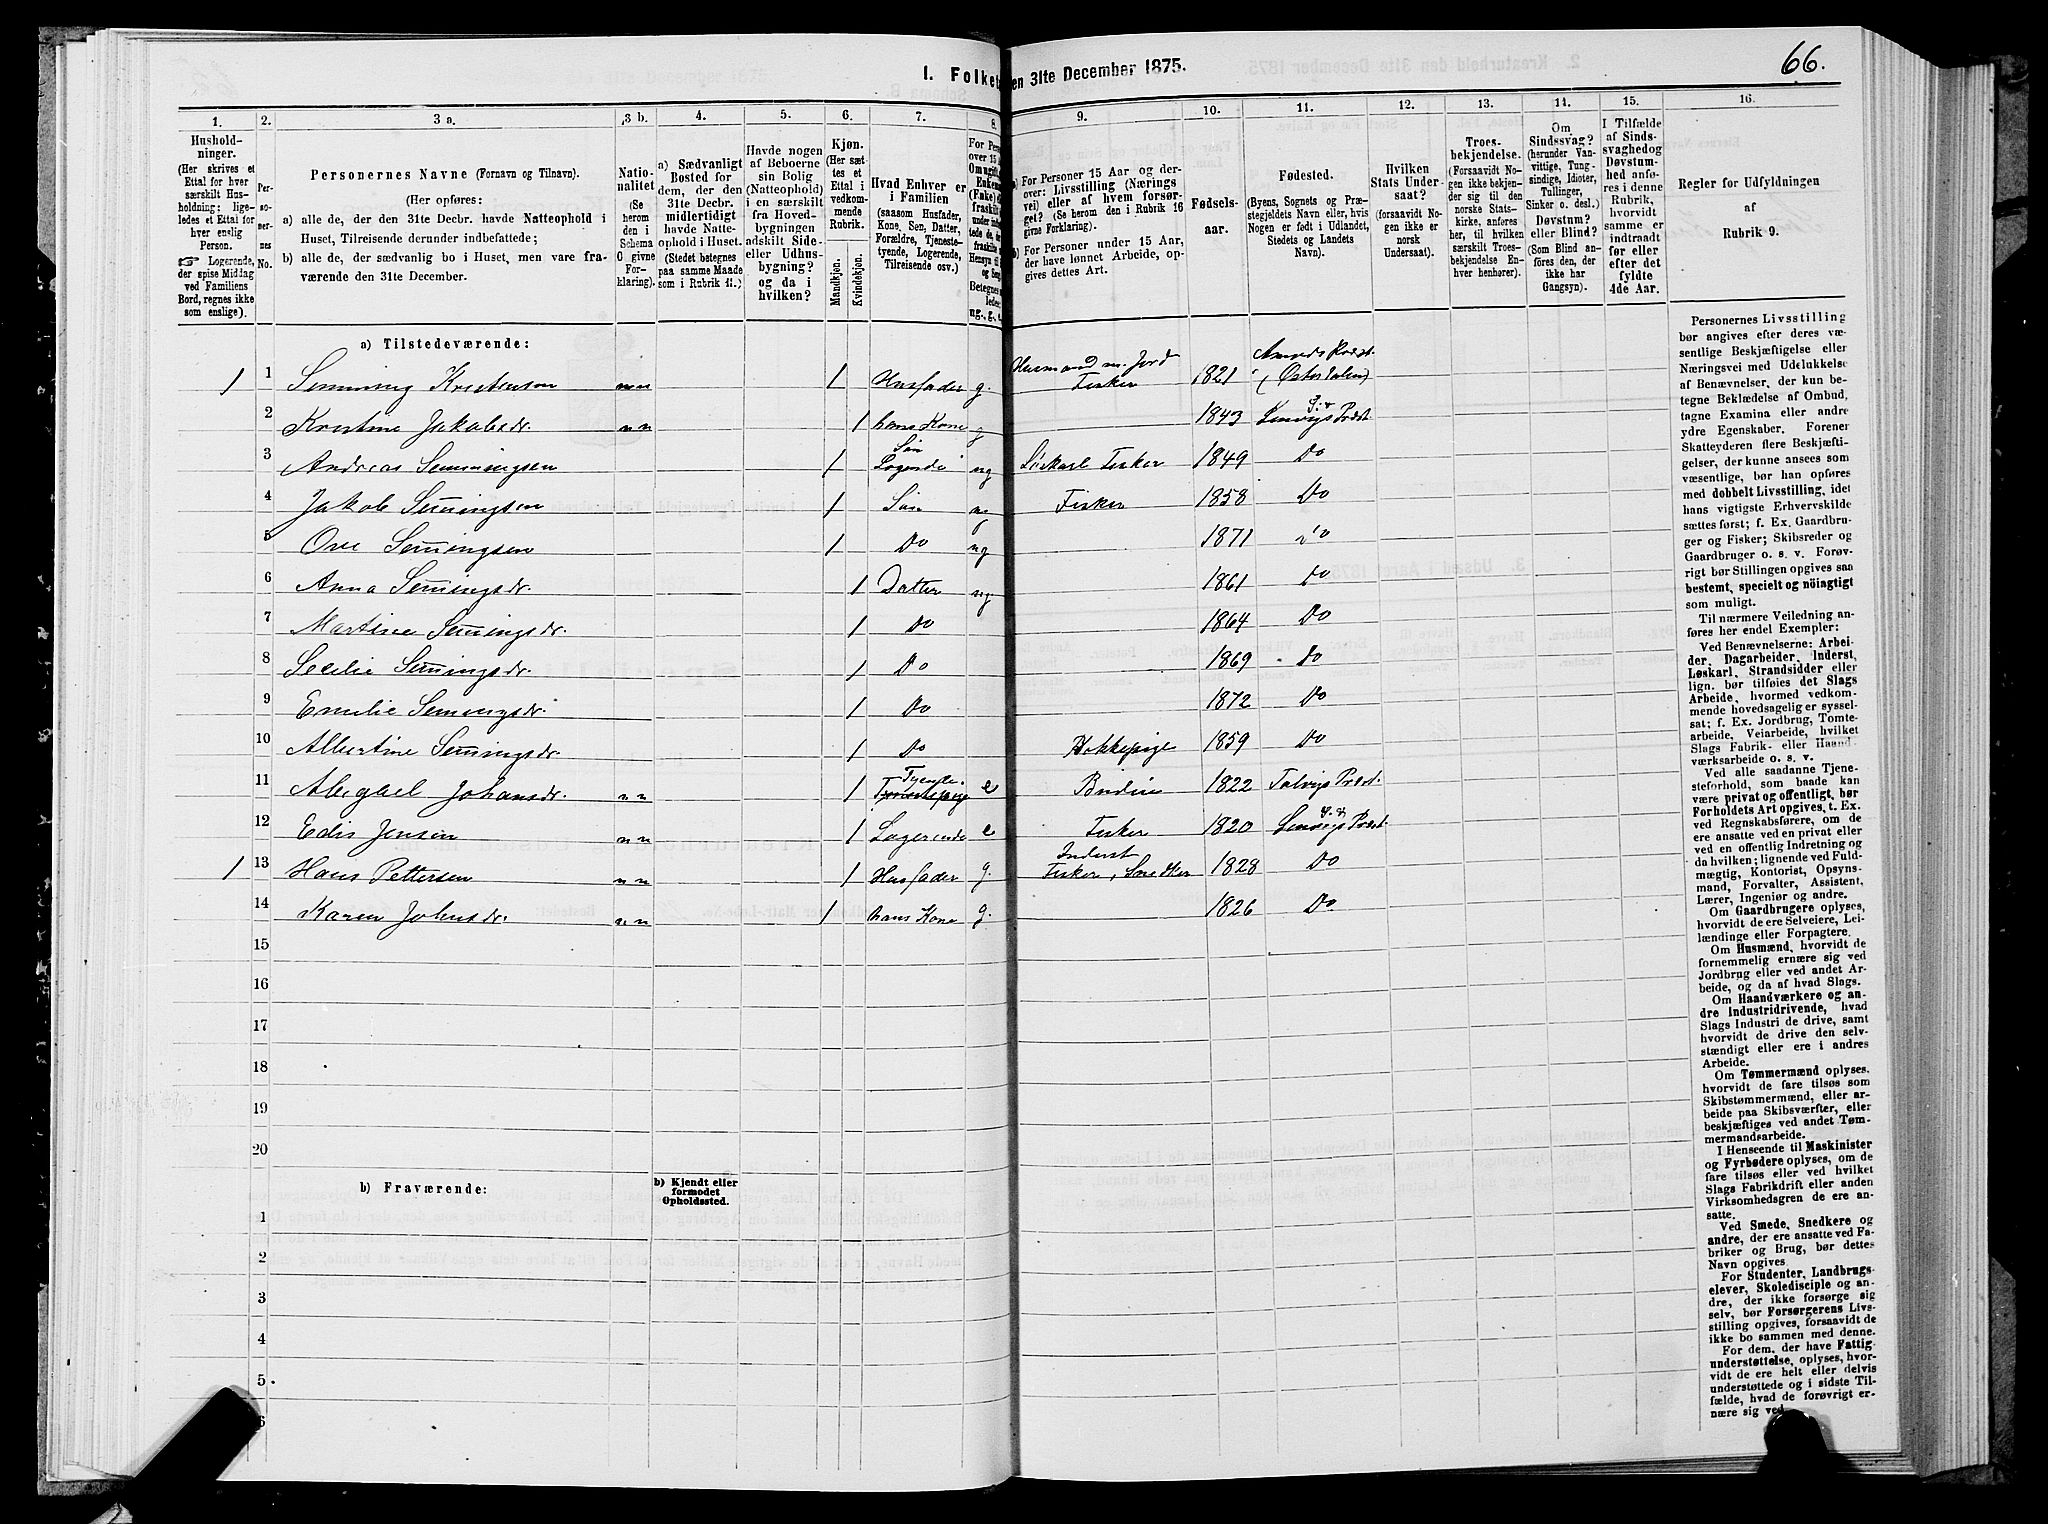 66.
I. Folket
en 31te December 1875.
1. 2. 3 a. 3 b. 4. 5. 6. 7. 8. 9. 10. 11. 12. 13. 14. 15. 16.
Hushold-
ninger.
(Her skrives et
Ettal for hver
særskilt Hus-
holdning; lige-
ledes et Ettal for
hver enslig
Person.
☞ Logerende,
der spise Middag
ved Familiens
Bord, regnes ikke
som enslige).
Per-
so-
ner-
nes
No.
Personernes Navne (Fornavn og Tilnavn).
(Her opføres:
a) alle de, der den 31te Decbr. havde Natteophold i
Huset, Tilreisende derunder indbefattede;
b) alle de, der sædvanlig bo i Huset, men vare fra-
værende den 31te December.
Natio-
nalitet
(Se
herom
den i
Schema
O givne
For-
klaring).
a) Sædvanligt
Bosted for
dem, der den
31te Decbr.
midlertidigt
havde Natte-
ophold i Huset.
(Stedet betegnes
paa samme Maade
som i Rubrik 11.)
Havde nogen
af Beboerne
sin Bolig
(Natteophold)
i en særskilt
fra Hoved-
bygningen
adskilt Side-
eller Udhus-
bygning?
og da i
hvilken?
Kjøn.
(Her sæt-
tes et
Ettal i
vedkom-
mende
Rubrik.)
Mandkjøn.
Kvindekjøn.
Hvad Enhver er
i Familien
(saasom Husfader,
Kone, Søn, Datter,
Forældre, Tjeneste-
tyende, Logerende,
Tilreisende osv.)
a) For Personer 15 Aar og der-
over: Livsstilling (Nærings
vei) eller af hvem forsør-
get? (Se herom den i Rubrik 16
givne Forklaring).
b) For Personer under 15 Aar,
der have lønnet Arbeide, op-
gives dettes Art.
Fødsels-
aar.
Fødested.
(Byens, Sognets og Præ-
stegjeldets Navn eller, hvis
Nogen er født i Udlandet,
Stedets og Landets
Navn).
Hvilken
Stats Under-
saat?
(forsaavidt No-
gen ikke er
norsk
Undersaat).
Troes-
bekjendelse.
(Forsaavidt No-
gen ikke bekjen-
der sig til den
norske Stats-
kirke, anføres
her, til hvilken
særskilt Troes-
bekjendelse En-
hver henhører).
Om
Sindssvag?
(herunder Van-
vittige, Tung-
sindige, Idioter,
Tullinger,
Sinker o. desl.)
Døvstum?
eller Blind?
(Som Blind an-
føres den, der
ikke har
Gangsyn).
I Tilfælde
af Sinds-
svaghed og
Døvstum-
hed anfø-
res i denne
Rubrik,
hvorvidt
samme er
indtraadt
før eller
efter det
fyldte
4de Aar.
Regler for Udfyldningen
af
Rubrik 9.
a) Tilstedeværende:
1 1 Semming Kristensen nn 1 Husfader g. Husmand m. Jord Fisker 1821 Præst. (Østerdalen)
2 Kristine Jakobsdr. nn 1 hans Kone g 1843 Lenvigs Præst.
3 Andreas Semmingsen 1 Søn Logerende ng Fisker 1849 Do
4 Jakob Semingsen 1 Søn ng Fisker 1858 Do
5 Ove Semingsen 1 Do ng 1871 Do
6 Anna Semingsdr. 1 Datter ng. 1861 Do
7 Martine Semingsdr. 1 Do 1864 Do
8 Secilie Semingsdr. 1 Do 1869 Do
9 Emilie Semingsdr. 1 Do 1872 Do
10 Albertine Semingsdr. 1 Do 1859 Do
11 Abigael Johansdr. nn 1 Tyende. e Budeie 1822 Talvigs Præst.
12 Edis Jensen nn 1 Logerende e Fisker 1820 Lenvigs Præst.
1 13 Hans Pettersen nn 1 Husfader g. Inderst Fisker, Snedker 1828 Do
14 Karen Johnsdr. nn 1 hans Kone g. 1826 Do
15
16
17
18
19
20
b) Fraværende:
b) Kjendt eller
formodet
Opholdssted.
1
2
3
4
5
6
Personernes Livsstilling
bør angives efter deres væ-
sentlige Beskjæftigelse eller
Næringsvei med Udelukkelse
af Benævnelser, der kun be-
tegne Beklædelse af Ombud,
tagne Examina eller andre
ydre Egenskaber. Forener
Skatteyderen flere Beskjæfti-
gelser, der kunne ansees som
væsentlige, bør han opføres
med dobbelt Livsstilling, idet
hans vigtigste Erhvervskilde
sættes først; f. Ex. Gaardbru-
ger og Fisker; Skibsreder og
Gaardbruger o. s. v. Forøv-
rigt bør Stillingen opgives saa
bestemt, specielt og nöiagtigt
som muligt.
Til nærmere Veiledning an-
føres her endel Exempler:
Ved Benævnelserne: Arbei-
der, Dagarbeider, Inderst,
Løskarl, Strandsidder eller
lign. bør tilføies det Slags
Arbeide, hvormed vedkom-
mende hovedsagelig er syssel-
sat; f. Ex. Jordbrug, Tomte-
arbeide, Veiarbeide, hvilket
Slags Fabrik- eller Haand-
værksarbeide o. s. v.
Ved alle saadanne Tjene-
steforhold, som baade kan
være privat og offentligt, bør
Forholdets Art opgives, t. Ex.
ved Regnskabsførere, om de
ere ansatte ved en privat eller
ved en offentlig Indretning og
da hvilken; lignende ved Fuld-
mægtig, Kontorist, Opsyns-
mand, Forvalter, Assistent,
Lærer, Ingeniør og andre.
Om Gaardbrugere oplyses,
hvorvidt de ere Selveiere, Lei-
lændinge eller Forpagtere.
Om Husmænd, hvorvidt de
fornemmelig ernære sig ved
Jordbrug eller ved andet Ar-
beide, og da af hvad Slags.
Om Haandværkere og an-
dre Industridrivende, hvad
Slags Industri de drive, samt
hvorvidt de drive den selv-
stændigt eller ere i andres
Arbeide.
Om Tømmermænd oplyses,
hvorvidt de fare tilsøs som
Skibstømmermænd, eller ar-
beide paa Skibsværfter, eller
beskjæftiges ved andet Tøm-
mermandsarbeide.
I Henseende til Maskinister
og Fyrbødere oplyses, om de
fare tilsøs eller ved hvilket
Slags Fabrikdrift eller anden
Virksomhedsgren de ere an-
satte.
Ved Smede, Snedkere og
andre, der ere ansatte ved Fa-
briker og Brug, bør dettes
Navn opgives.
For Studenter, Landbrugs-
elever, Skoledisciple og an-
dre, der ikke forsørge sig
selv, bør Forsørgerens Livs-
stilling opgives, forsaavidt de
ikke bo sammen med denne.
For dem, der have Fattig-
understøttelse, oplyses, hvor-
vidt de ere helt eller delvis
understøttede og i sidste Til-
fælde, hvad de forøvrigt er-
nære sig ved.